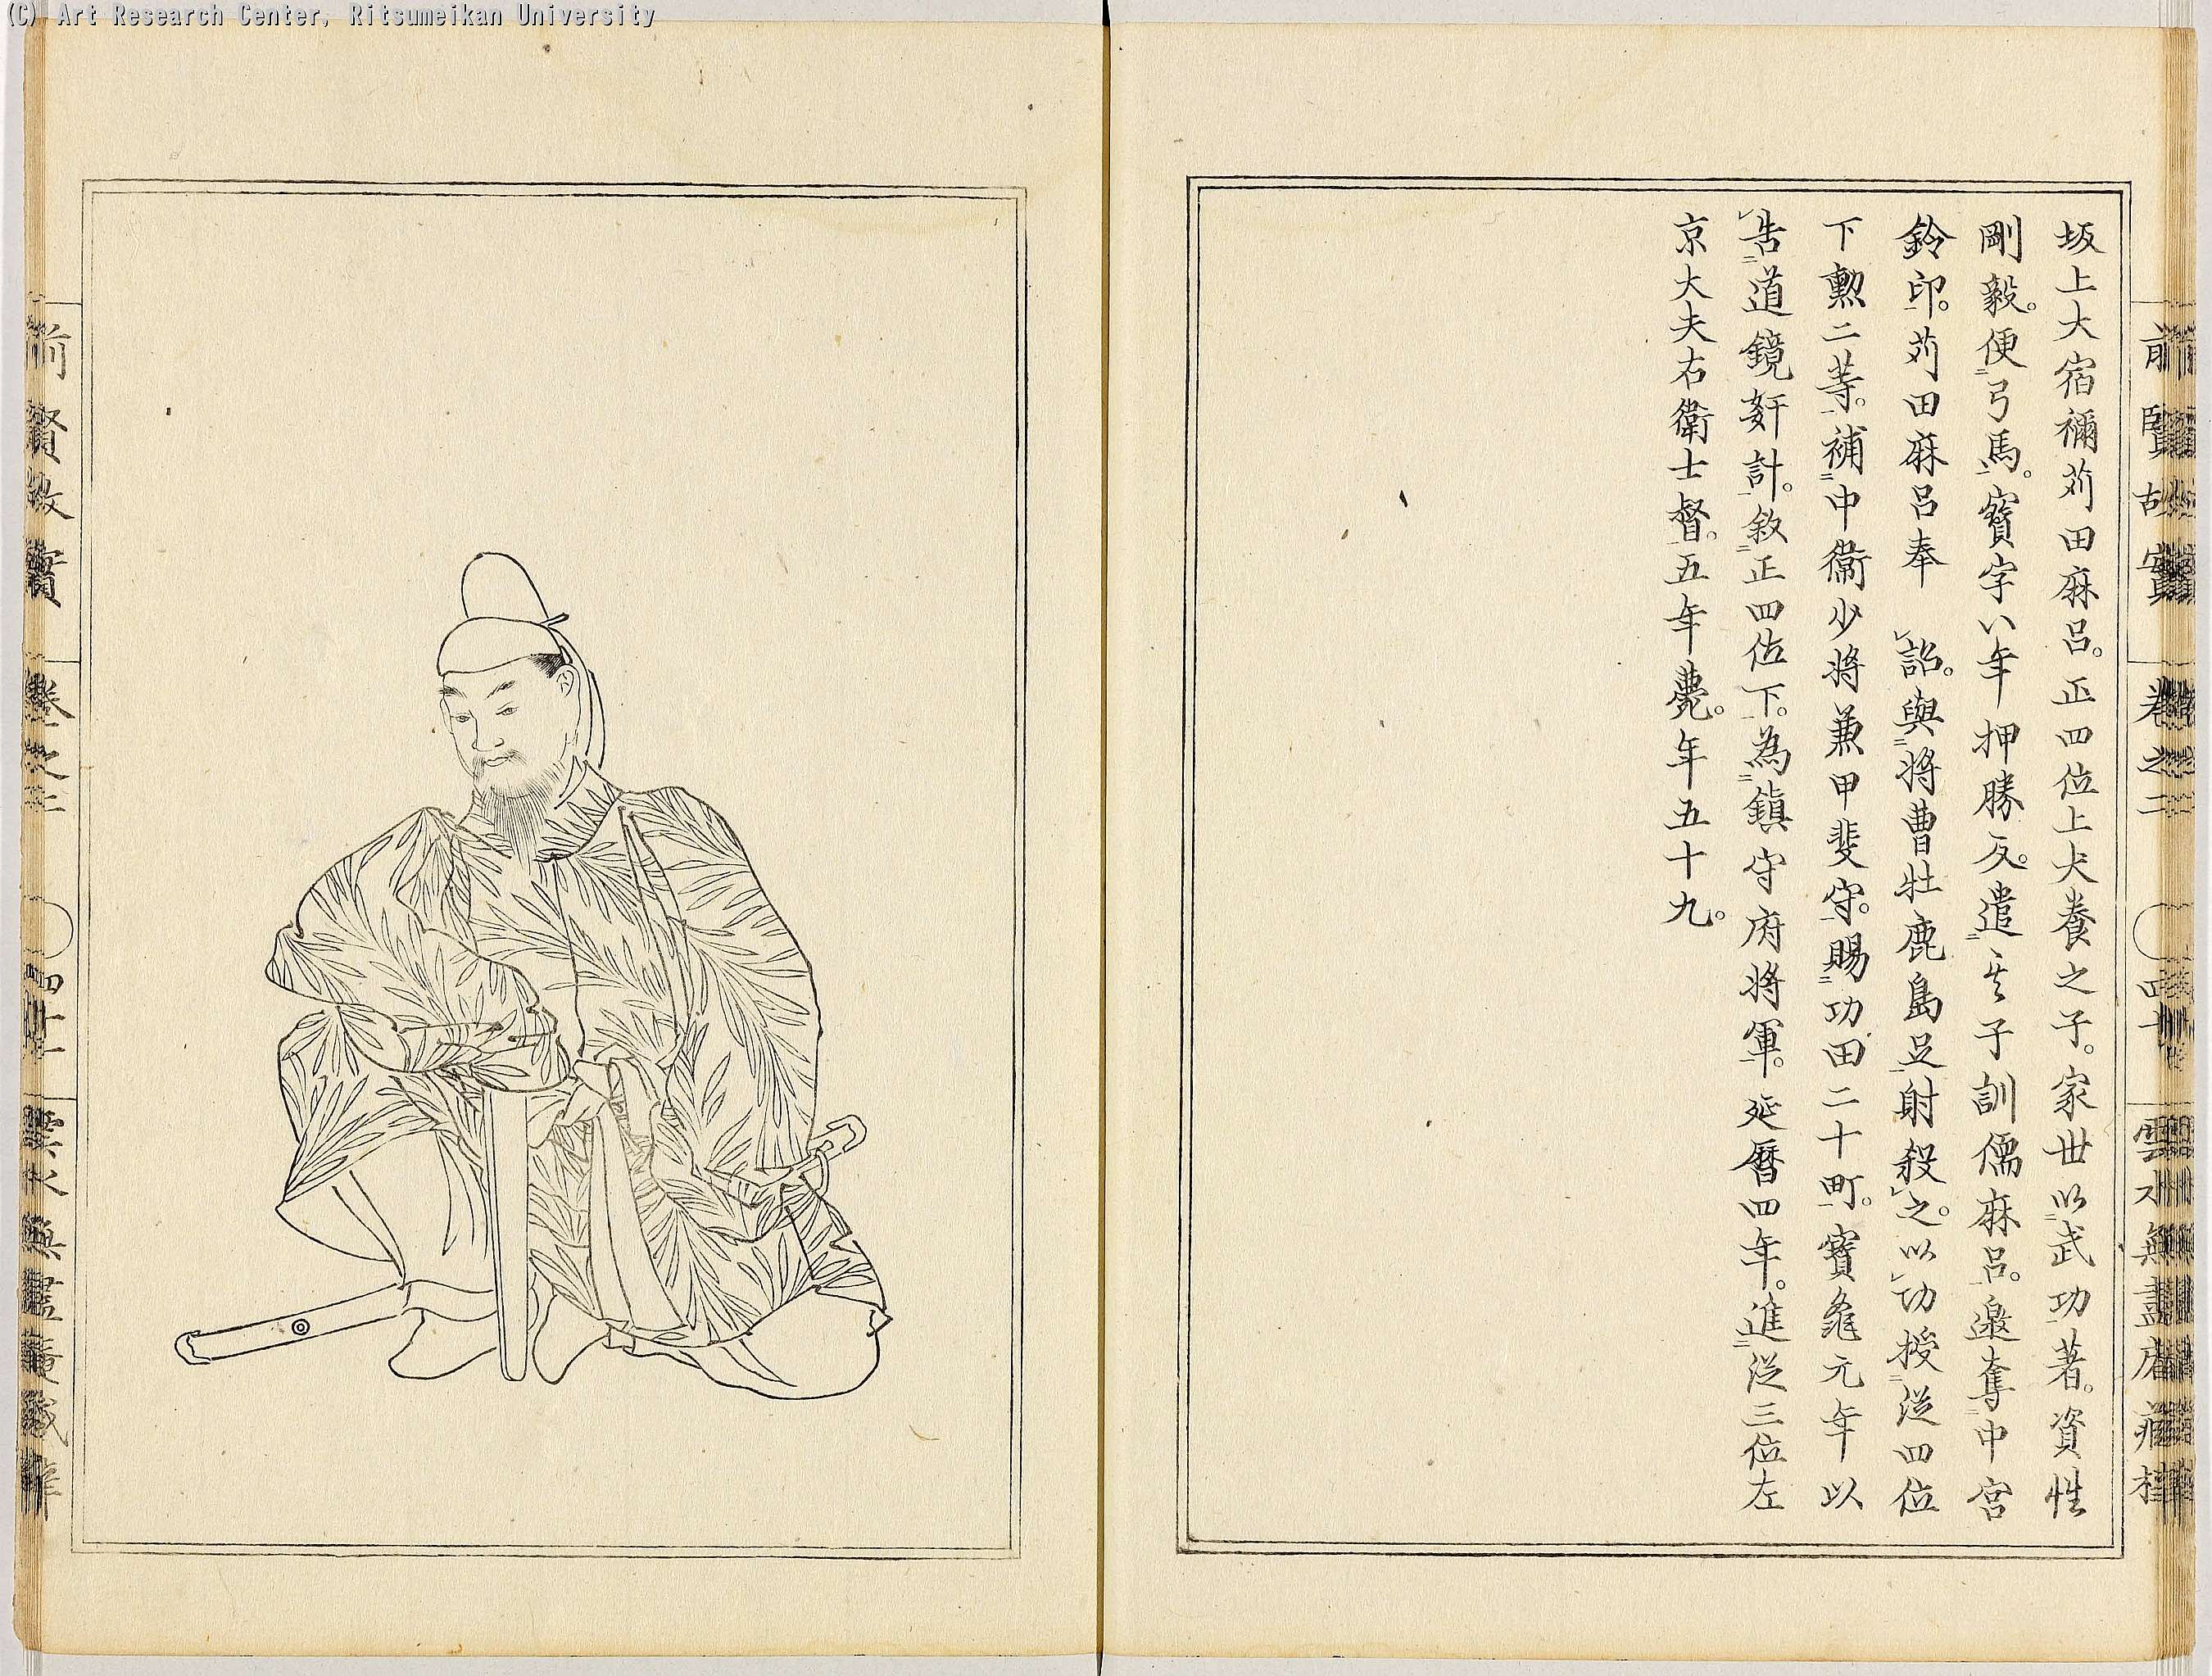 (C) Art Research Center, Ritsumeikan University
前賢故實 卷之二 四十 雲水無盡庵藏梓
坂上大宿禰苅田麻呂。正四位上犬養之子。家世以武功著。資性
剛毅。便弓馬。寶字八年押勝反。遣其子訓儒麻呂。邀奪中宮
鈴印。苅田麻呂奉 詔。與將曹牡鹿島足射殺之。以功授從四位
下勲二等。補中衞少將兼甲斐守。賜功田二十町。寶龜元年以
告道鏡姧計。敘正四位下。為鎮守府將軍。延曆四年。進從三位左
京大夫右衞士督。五年薨。年五十九。
前賢故實 卷之二 四十一 雲水無盡庵藏梓